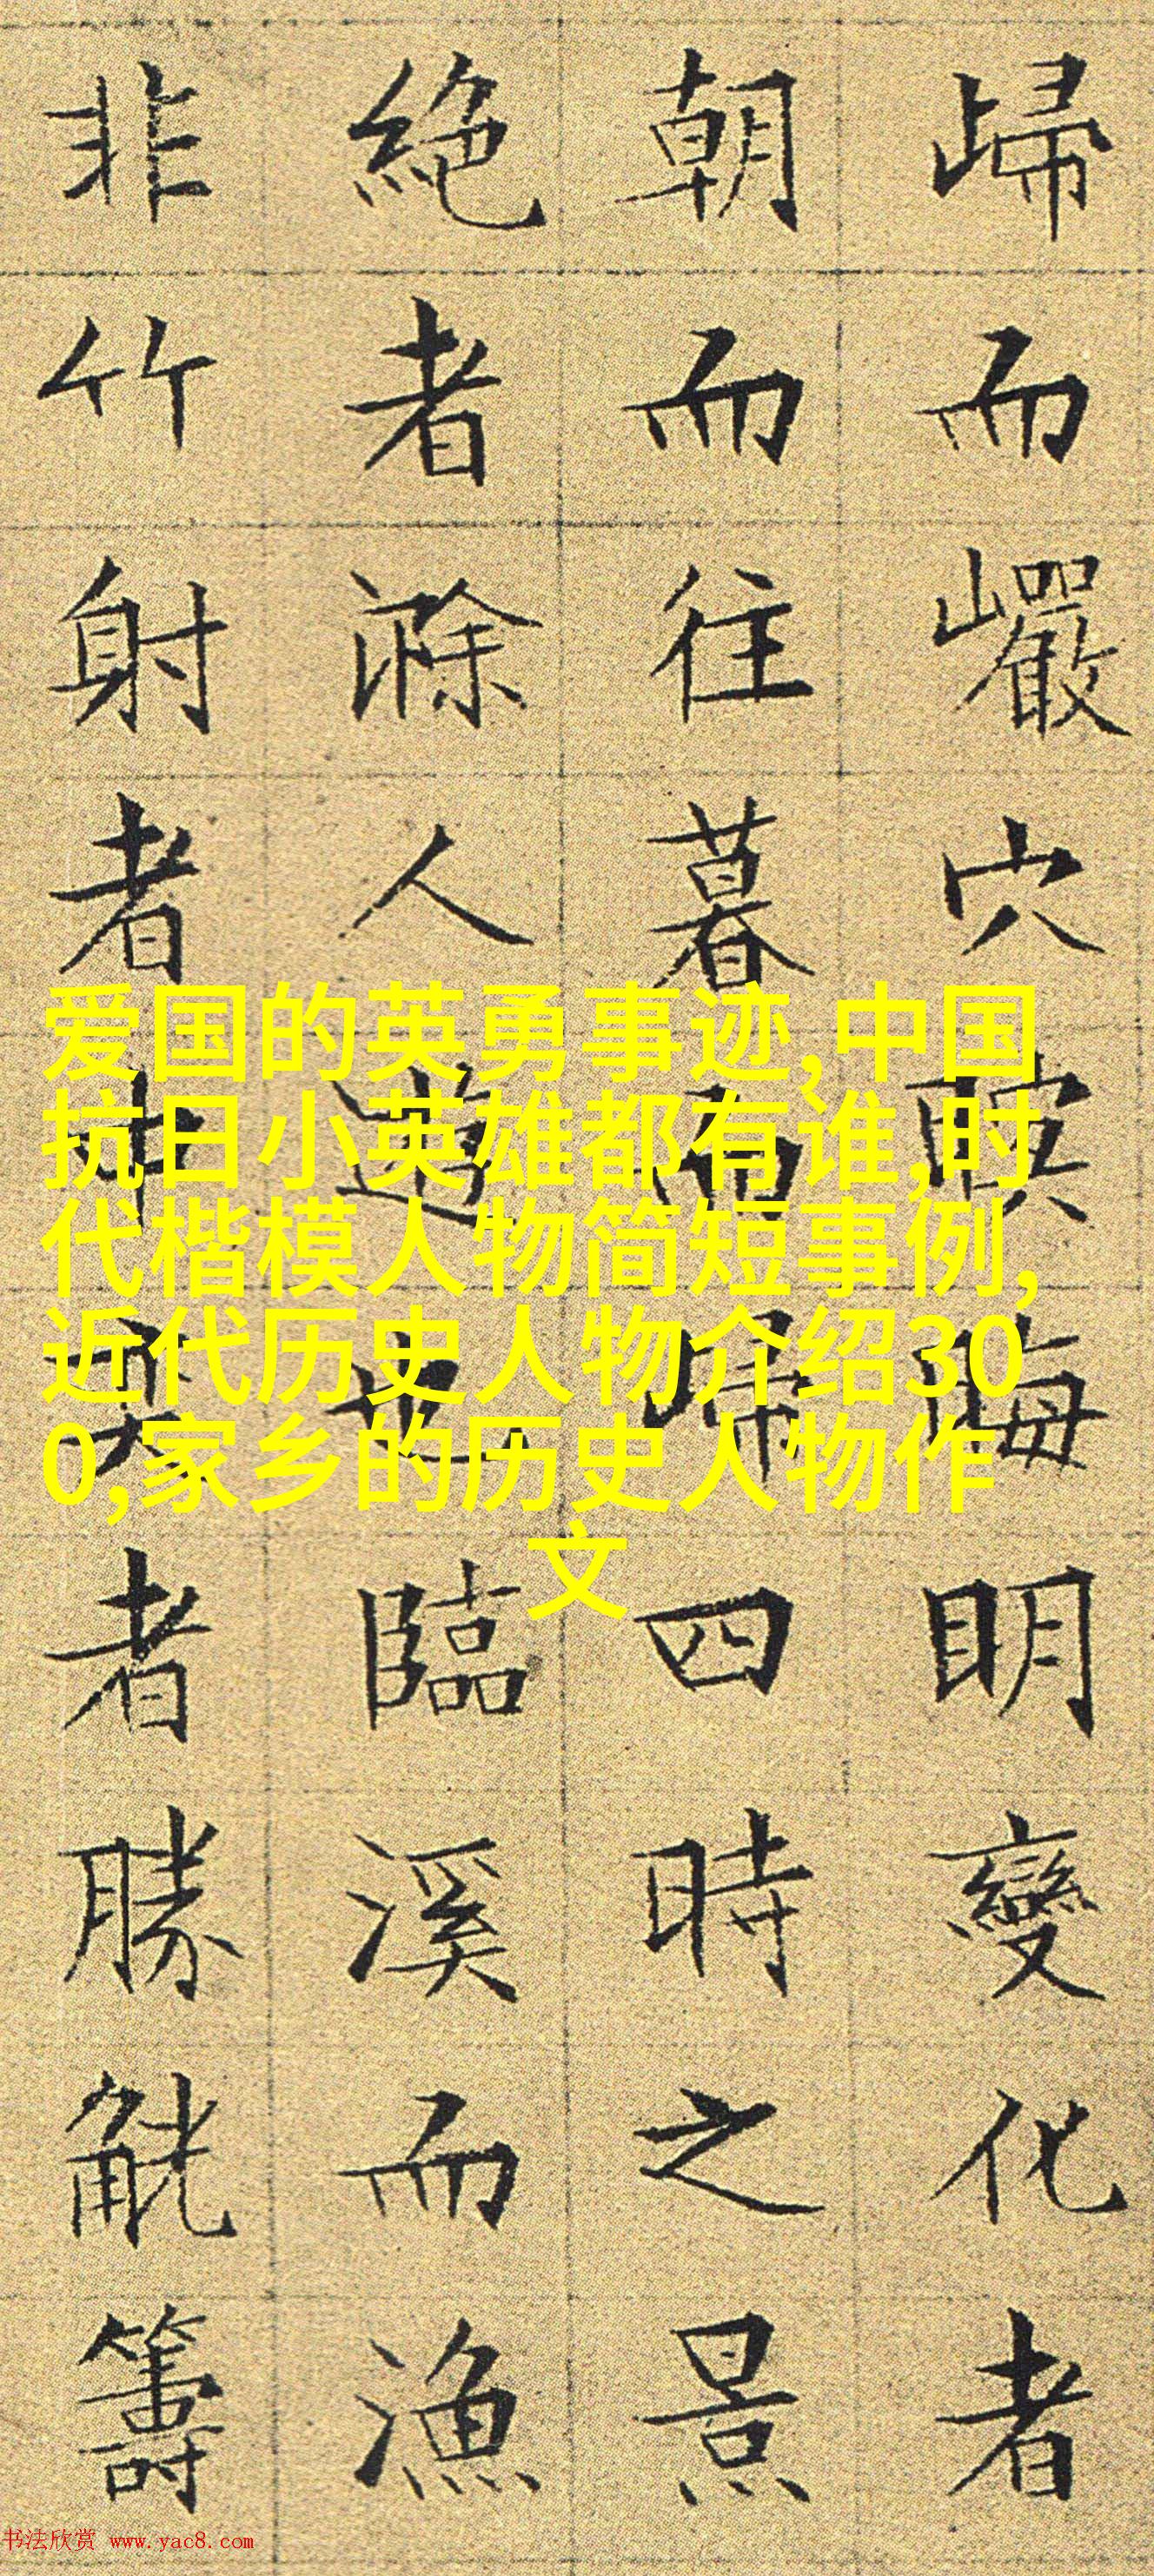 歸而巗穴暝晦明變化者
朝而往暮而歸四時之景
絶者滁人遊也臨溪而漁
非竹射者中奕者勝觥籌
爱国的英勇事迹,中国
抗日小英雄都有谁,时
代楷模人物简短事例,
近代历史人物介绍30
0,家乡的历史人物作
文
书法欣赏 www.yac8.com